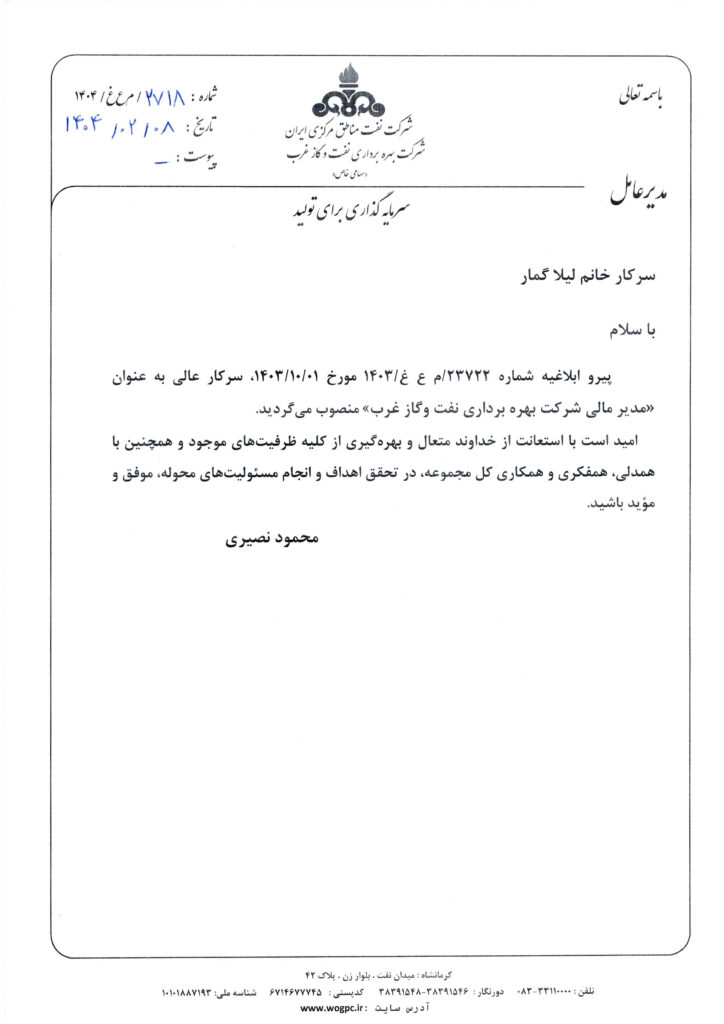 باسمه تعالی
شماره : ۲۷۱۸/م ع غ/۱۴۰۴
تاریخ : ۱۴۰۴/۰۲/۰۸
پیوست : _
شرکت نفت مناطق مرکزی ایران
شرکت بهره برداری نفت و گاز غرب
(سهامی خاص)
مدیرعامل
سرمایه گذاری برای تولید
سرکار خانم لیلا گمار
با سلام
پیرو ابلاغیه شماره ۲۳۷۲۲/م ع غ/۱۴۰۳ مورخ ۱۴۰۳/۱۰/۰۱، سرکار عالی به عنوان
«مدیر مالی شرکت بهره برداری نفت وگاز غرب» منصوب می‌گردید.
امید است با استعانت از خداوند متعال و بهره‌گیری از کلیه ظرفیت‌های موجود و همچنین با
همدلی، همفکری و همکاری کل مجموعه، در تحقق اهداف و انجام مسئولیت‌های محوله، موفق و
مؤید باشید.
محمود نصیری
کرمانشاه : میدان نفت ، بلوار زن ، پلاک ۴۲
تلفن : ۳۳۱۱۰۰۰۰-۰۸۳ دورنگار : ۳۸۳۹۱۵۴۶-۳۸۳۹۱۵۴۸ کدپستی : ۶۷۱۴۶۷۷۷۴۵ شناسه ملی: ۱۰۱۰۱۸۸۷۱۹۳
آدرس سایت : www.wogpc.ir